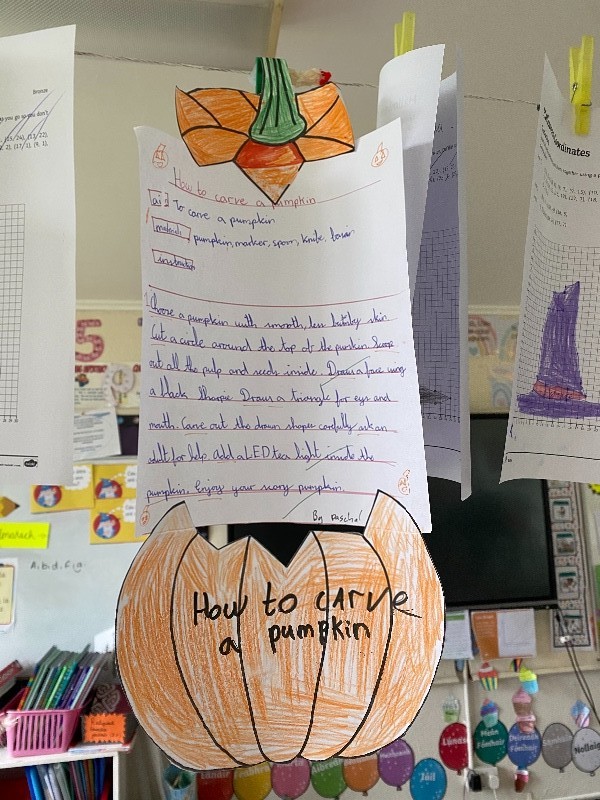 How to carve a pumpkin
aim To carve a pumpkin
materials pumpkin, marker, spoon, knife,
instructions
1. Choose a pumpkin with smooth, less skin.
Cut a circle around the top of the pumkin. Scoop
out all the pulp and seeds inside. Draw a face using
a black Sharpie. Draw a triangle for eye and
mouth. Carve out the drawn shapes carefully ask an
adult for help. Add a LED tea light inside the
pumpkin. Enjoy your scary pumpkin.
By Paschal
How to carve
a pumpkin
Bronze
(15, 24), (13, 22),
(17, 1), (9, 1),
A, b, d, f, g
Lúnasa
Meán Fómhair
Deireadh Fómhair
Samhain
Nollaig
Iúil